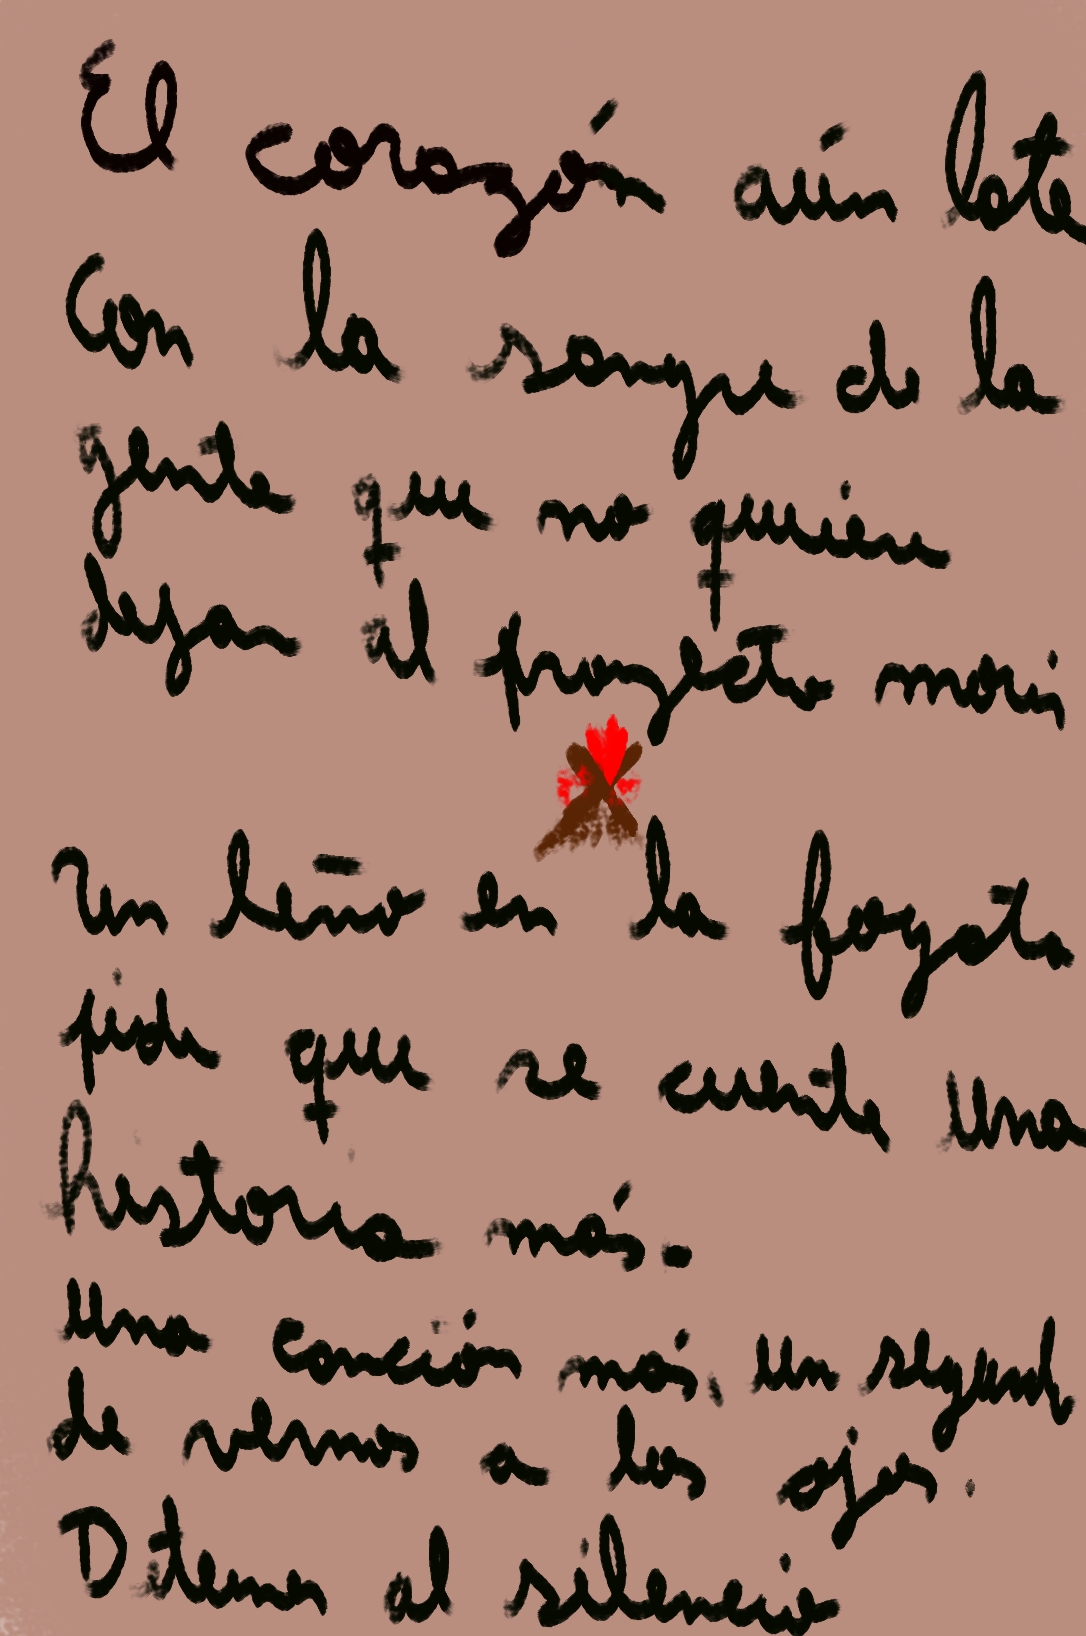 El corazón aún late
Con la sangre de la
gente que no quiere
dejar al proyecto morir
Un leño en la fogata
pide que se cuente una
historia más.
Una canción más, un segund
de vernos a los ojos.
al silencio